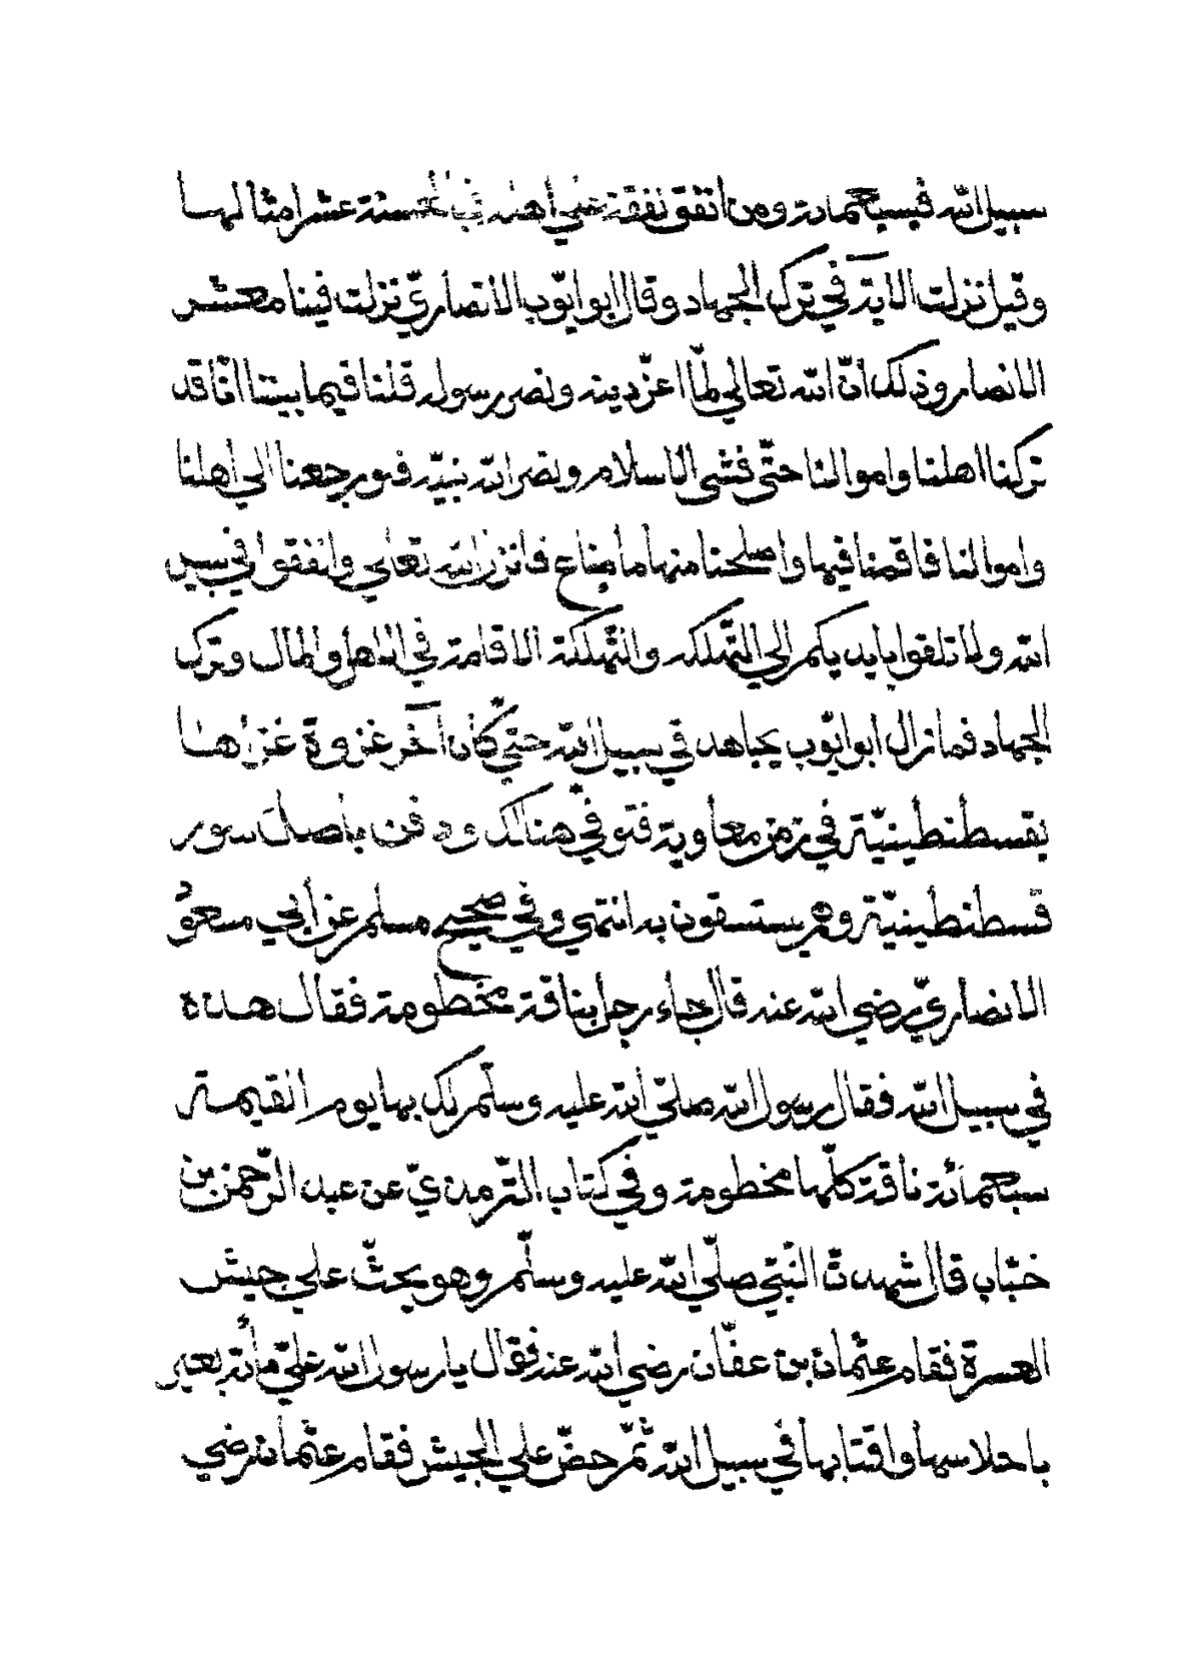 سبيل الله فبسبعمائة ومن انفق نفقة علي أهله فالحسنة عشر امثالها
وقيل نزلت الآية في ترك الجهاد وقال ابو ايّوب الانصاريّ نزلت فينا معشر
الانصار وذلك أنّ الله تعالي لمّا اعزّ دينه ونصر رسوله قلنا فيما بيننا انّا قد
تركنا اهلنا واموالنا حتّي فشي الاسلام ونصر الله نبيّه فلو رجعنا الي اهلنا
واموالنا فاقمنا فيها واصلحنا منها ما ضاع فانزل الله تعالي وانفقوا في سبيل
الله ولا تلقوا بايديكم الي التّهلكه والتّهلكة الاقامة في الاهل والمال وترك
الجهاد فما زال ابو ايّوب يجاهد في سبيل الله حتّي كان آخر غزوة غزاها
بقسطنطينيّة في زمن معاوية فتوفّي هنالك ودفن باصل سور
قسطنطينيّة وهم يستسقون به انتهي وفي صحيح مسلم عن أبي مسعود
الانصاريّ رضي الله عنه قال جاء رجل بناقة مخطومة فقال هذه
في سبيل الله فقال رسول الله صلّي الله عليه وسلّم لك بها يوم القيمة
سبعمائة ناقة كلّها مخطومة وفي كتاب التّرمذيّ عن عبد الرّحمن بن
خبّاب قال شهدت النّبيّ صلّي الله عليه وسلّم وهو يحثّ علي جيش
العسرة فقام عثمان بن عفّان رضي الله عنه فقال يا رسول الله عليّ مأئة بعير
باحلاسها واقتابها في سبيل الله ثمّ حضّ علي الجيش فقام عثمان رضي